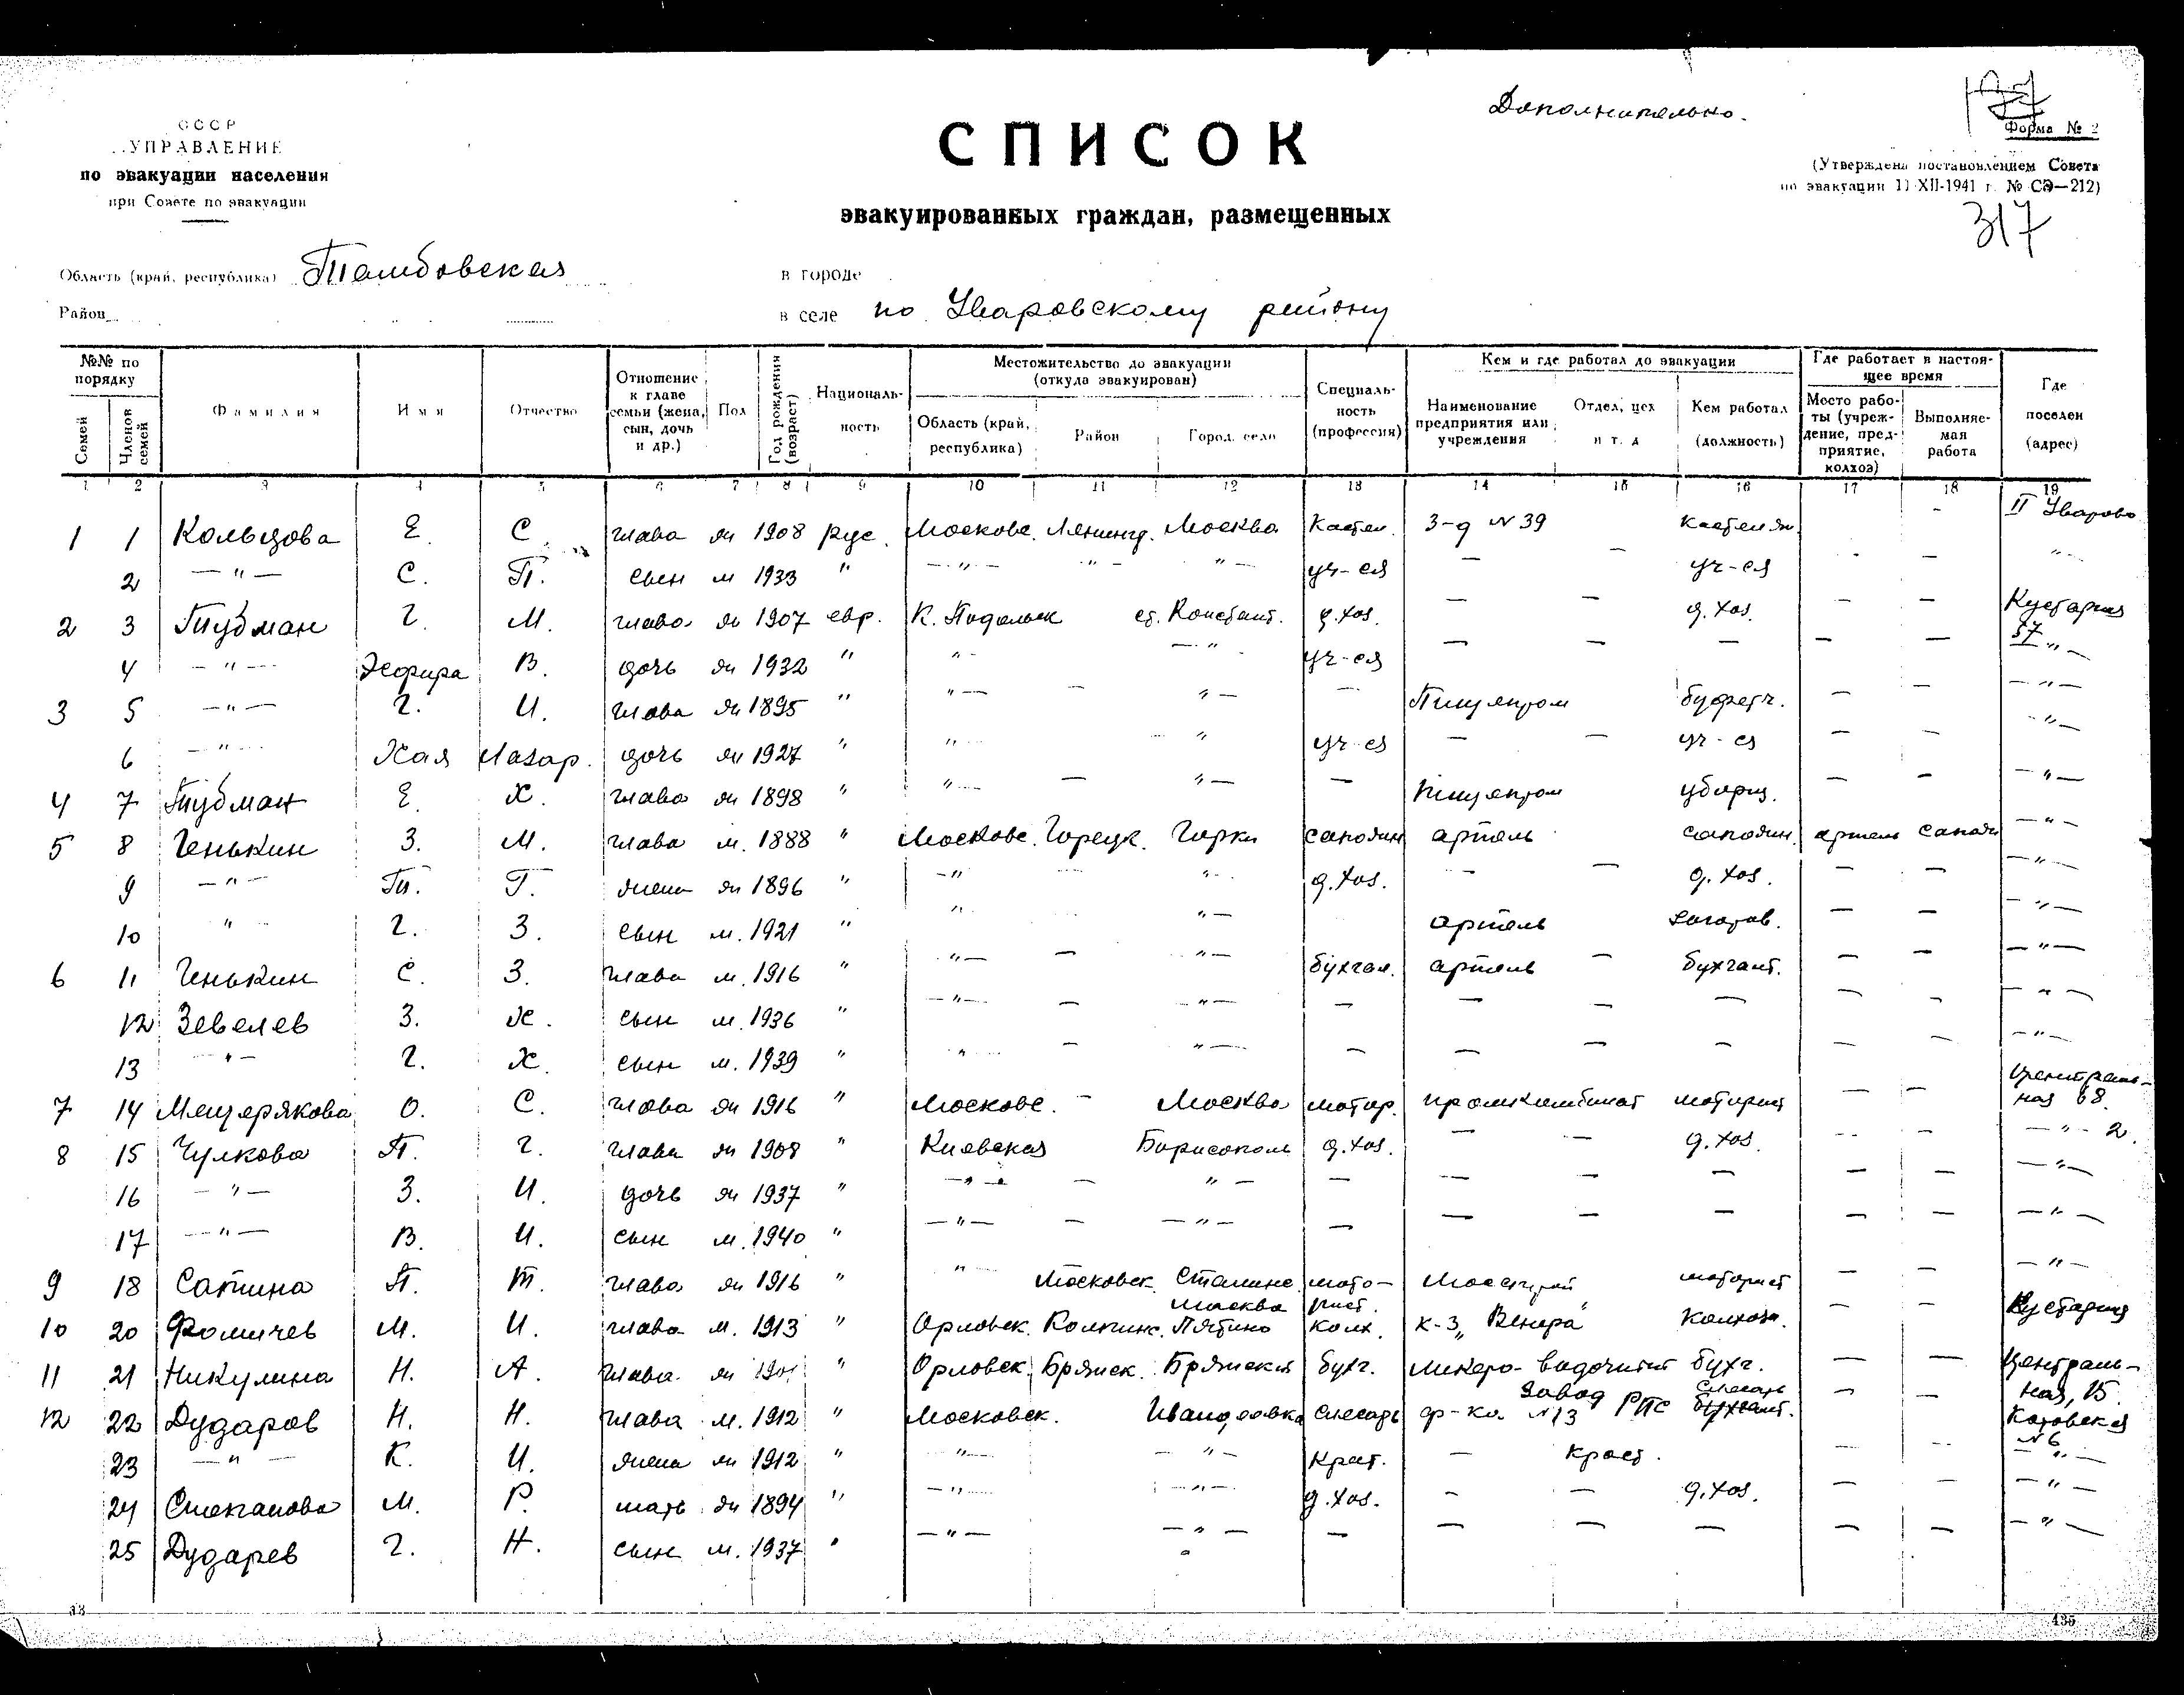 Дополнительно.
СССР
УПРАВЛЕНИЕ
по эвакуации населения
при Совете по эвакуации
СПИСОК
эвакуированных граждан, размещенных
Форма № 2
(Утверждена постановлением Совета
по эвакуации 11-XII-1941 г. № СЭ—212)
317
Область (край, республика) Тамбовская
в городе
Район
в селе по Уваровскому району
№№ по порядку Семей Членов семей Фамилия Имя Отчество Отношение к главе семьи (жена, сын, дочь и др.) Пол Год рождения (возраст) Националь- ность Местожительство до эвакуации (откуда эвакуирован) Область (край, республика) Район Город, село Специаль- ность (профессия) Кем и где работал до эвакуации Наименование предприятия или учреждения Отдел, цех и т. д. Кем работал (должность) Где работает в настоя- щее время Место рабо- ты (учреж- дение, пред- приятие, колхоз) Выполняе- мая работа Где поселен (адрес)
1 2 3 4 5 6 7 8 9 10 11 12 13 14 15 16 17 18 19
1 1 Кольцова Е. С. глава ж 1908 рус. Московс. Ленингр. Москва Кастел. З-д № 39 кастелян. - II Уварово
2 — " — С. П. сын м 1933 " — " — " — " — уч-ся — — уч-ся - — " —
2 3 Тубман Г. М. глава ж 1907 евр. К. Подольск ст. Констант. д. хоз. — — д. хоз. — — Кустарная 57
4 — " — Эсфира В. дочь ж 1932 " " — — " уч-ся — — — — — — " —
3 5 — " — Г. И. глава ж 1895 " " — — " — — Пищепром буфетч. — — — " —
6 — " — Хая Лазар. дочь ж 1927 " " " уч-ся — — уч-ся — — — " —
4 7 Тубман Е. Х. глава ж 1898 " " — — " — — Пищепром уборщ. — — — " —
5 8 Генькин З. М. глава м. 1888 " Московс. Горецк. Горки сапожн артель сапожн. артель сапожн — " —
9 — " — Т. Г. жена ж 1896 " — " " д. хоз. — — д. хоз. — — — " —
10 " Г. З. сын м. 1921 " " " — артель заготов. — — — " —
6 11 Генькин С. З. глава м. 1916 " — " — — — " — бухгал. артель — бухгалт. — — — " —
12 Зевелев З. Х. сын м. 1936 " — " — — — " — — — — — — — — " —
13 — " — Г. Х. сын м. 1939 " " — " — — — — — — — — " —
7 14 Мещерякова О. С. глава ж 1916 " Московс. - Москва мотор. промкомбинат моторист — — Централь- ная 68.
8 15 Чулкова П. Г. глава ж 1908 " Киевская Борисополь д. хоз. — — д. хоз. — — — " — 2.
16 — " — З. И. дочь ж 1937 " — " — — " — — — — — — — — " —
17 — " — В. И. сын м. 1940 " — " — — — " — — — — — — — — " —
9 18 Сатина П. Т. глава ж 1916 " " Московск. Сталинс. Москва мото- рист. моторист — — — " —
10 20 Фомичев М. И. глава м. 1913 " Орловск. колх. к-з „Венера" колхозн. — — Кустарная
11 21 Никулина Н. А. глава ж " Орловск. Брянск. Брянск бухг. ликеро-водочный завод бухг. — — Централь- ная, 15.
12 22 Дударов Н. Н. глава м. 1912 " Московск. слесарь ф-ка № 13 РПС слесарь — — Котовская № 6
23 — " — К. И. жена ж 1912 " — " — — " — — — — — " —
24 Степанова М. Р. мать ж 1894 " — " — — " — д. хоз. - — д. хоз. — — — " —
25 Дударев Г. Н. сын м. 1937 " — " — — " — — — — — — — — " —
435